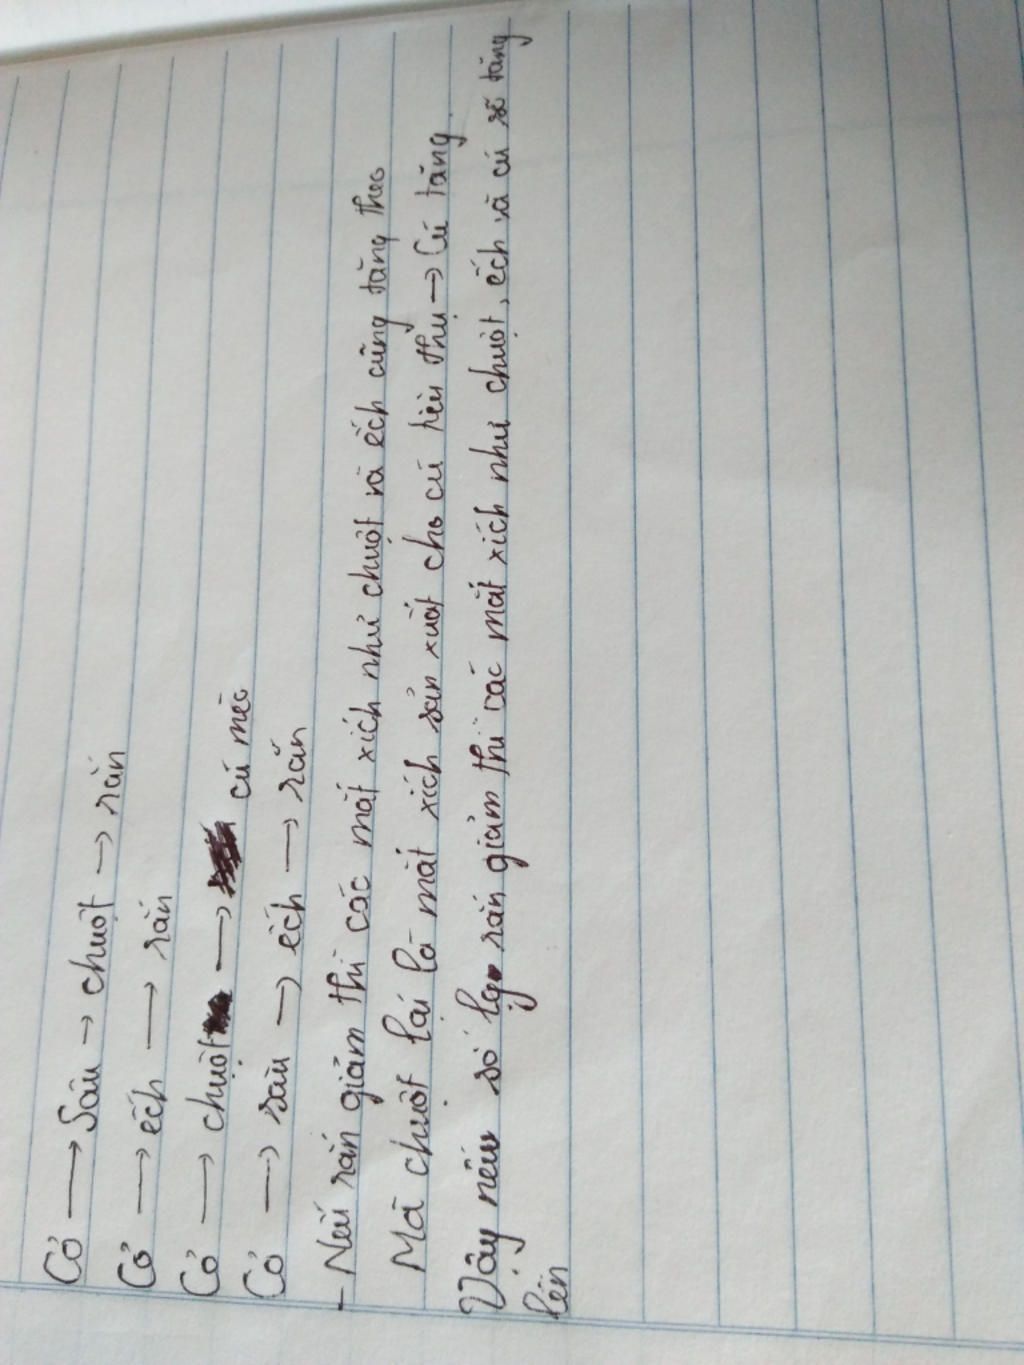 Cỏ → Sâu → chuột → rắn
Cỏ → ếch → rắn
Cỏ → chuột → cú mèo
Cỏ → sâu → ếch → rắn
- Nếu rắn giảm thì các mắt xích như chuột và ếch cũng tăng theo
Mà chuột lại là mắt xích sản xuất cho cú tiêu thụ → Cú tăng.
Vậy nếu số lg rắn giảm thì các mắt xích như chuột, ếch và cú sẽ tăng
lên